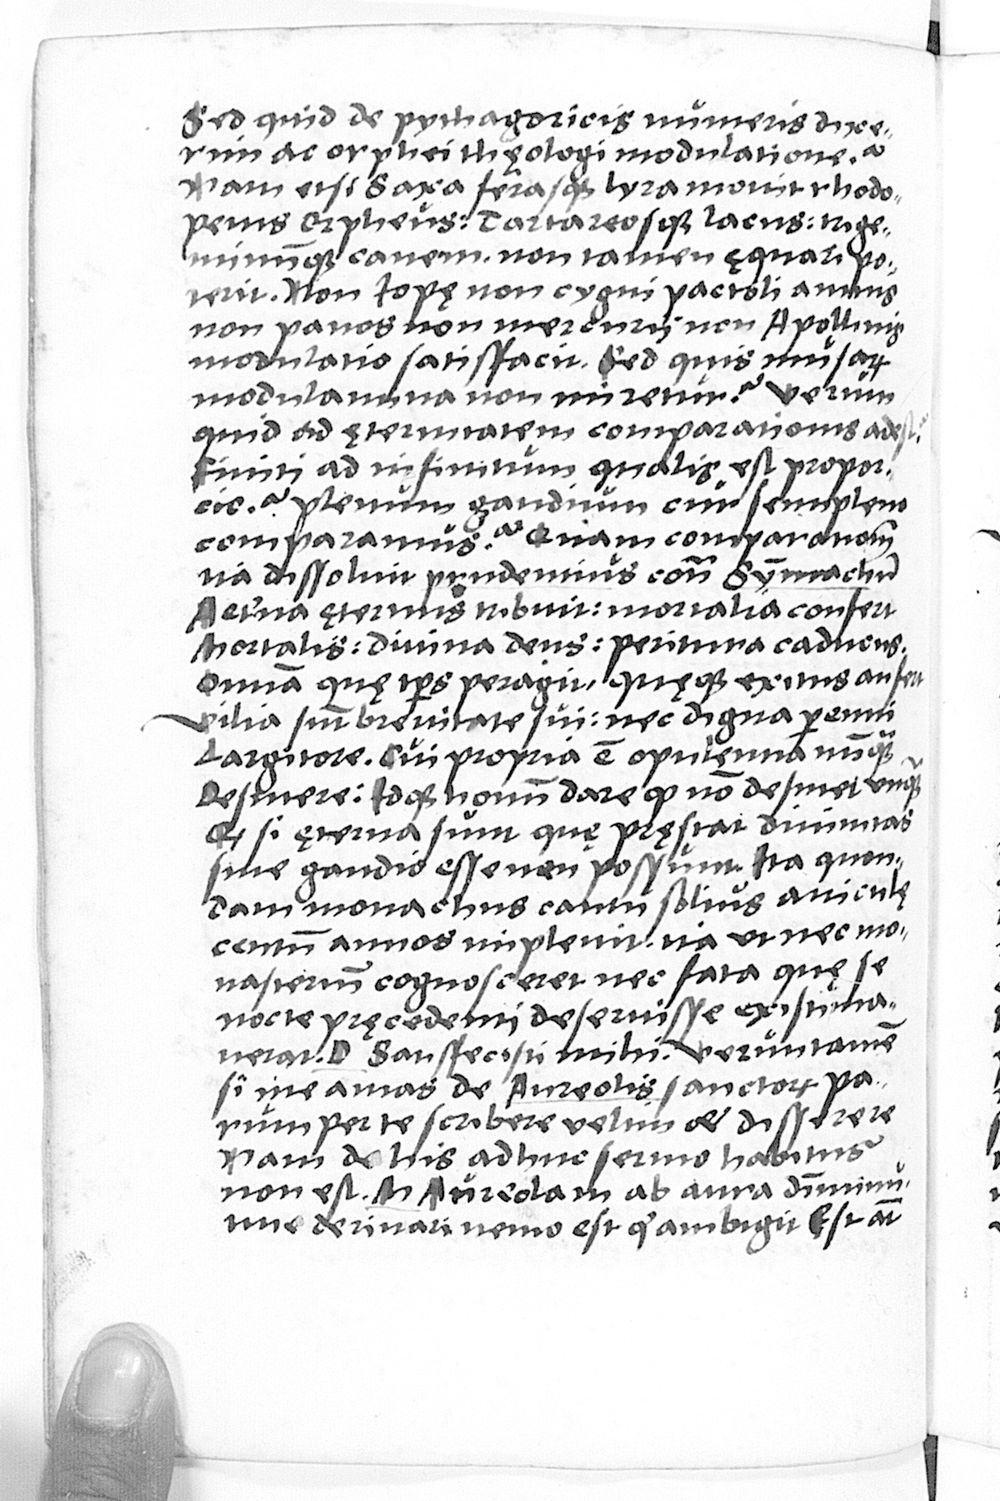 Sed quid de pythagoricis numeris dixe-
rim ac orphei thęologi modulatione.?
Nam etsi Saxa ferasqꝫ lyra mouit rhodo-
peius Orpheus: Tartareosqꝫ lacus: trige-
minūqꝫ canem. non tamen ęquari po-
terit. Non Iopę non cygni pactoli amnis
non panos non mercurij non Apollinis
modulatio satisfacit. Sed quis musaꝝ
modulamina non miretur.? Verum
quid ad ęternitatem comparationis adest.?
Finiti ad infinitum qualis est propor-
cio.? plenum gaudium cum semipleno
comparamus.? Quam comparationem̄
ita dissoluit prudentius con̄ Sym̄achū
Aeterna ęternus tribuit: mortalia confert
Mortalis: diuina deus: peritura caducus.
Omnia quę tp̄s peragit, quęqꝫ exitus aufert
Vilia sūt breuitate sui: nec digna ꝑenni
Largitore. Cui propria ē opulentia nūqꝫ
Desinere: Idqꝫ homī dare qꝫ nō desinet vnqꝫ
Et si ęterna sunt quę pręstat diuinitas
sine gaudio esse non possunt. Ita quon-
dam monachus cantu solius auiculę
centū annos impleuit. ita vt nec mo-
nasteriū cognosceret nec fata quę se
nocte pręcedenti deseruisse existima-
uerat. D Satisfecisti mihi. Veruntamē
si me amas de Aureolis sanctoꝝ pa-
rumper te scribere velim & disserere
Nam de his adhuc sermo habitus
non est. M Aureolam ab aura diminu-
tiue deriuari nemo est q̄ ambigit Est at̄